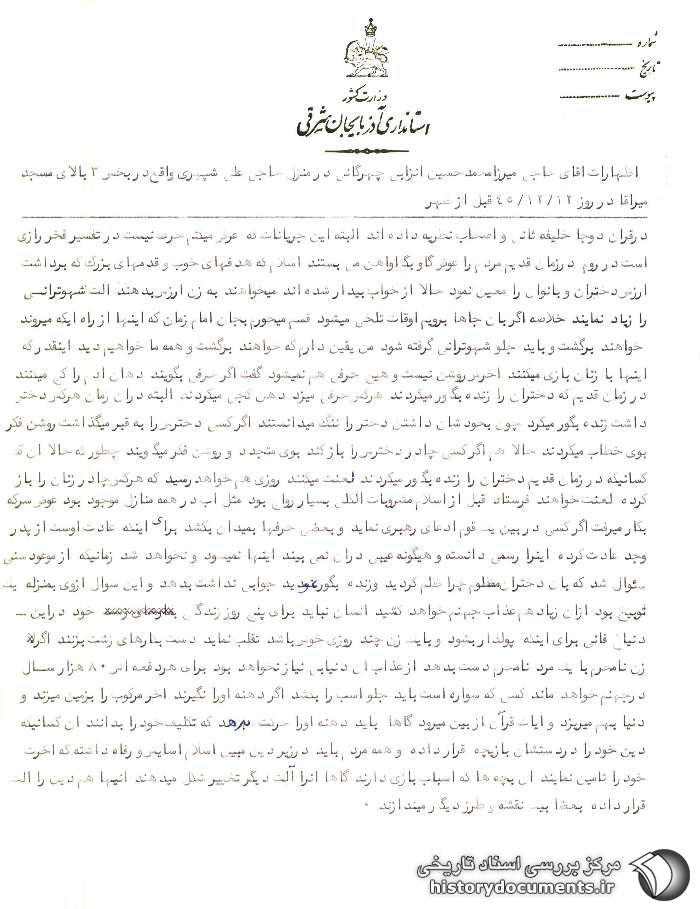 شماره
تاریخ
پیوست
وزارت کشور
استانداری آذربایجان شرقی
اظهارات اقای حاجی میرزامحمدحسین انزابی چهرگانی در منزل حاجی علی شپهری واقع در بخش ۳ بالای مسجد
میراقا در روز ۴۵/۱۲/۱۲ قبل از ظهر
درقران دوجا خلیفه ثانی و اصحاب نظریه داده اند البته این جریانات که عرض میکنم حرف نیست در تفسیر فخر رازی
است در روم درزمان قدیم مردم را عوض گاو بگاواهن می بستند اسلام که هدفهای خوب و قدمهای بزرگ که برداشت
ارزش دختران و بانوان را معین نمود حالا از خواب بیدار شده اند میخواهند به زن ارزش بدهند الت شهوترانی
را زیاد نمایند خلاصه اگر بان جاها برویم اوقات تلخی میشود قسم میخورم بجان امام زمان که اینها از راه ایکه میروند
خواهند برگشت و باید جلو شهوترانی گرفته شود من یقین دارم که خواهند برگشت و همه ما خواهیم دید اینقدر که
اینها با زنان بازی میکنند اخرش روشن نیست و هیچ حرفی هم نمیشود گفت اگر حرفی بگویند دهان ادم را کج میکنند
در زمان قدیم که دختران را زنده بگور میکردند هرکس حرفی میزد دهن کجی میکردند البته دران زمان هرکس دختر
داشت زنده بگور میکرد چون بخودشان داشتن دختر را ننگ میدانستند اگر کسی دخترش را به قبر میگذاشت روشن فکر
بوی خطاب میکردند حالا هم اگر کسی چادر دخترش را باز کند بوی متجدد و روشن فکر میگویند چطور که حالا ان
کسانیکه در زمان قدیم دختران را زنده بگور میکردند لعنت میکنند روزی هم خواهد رسید که هرکس چادر زنان را باز
کرده لعنت خواهند فرستاد قبل از اسلام مشروبات الکلی بسیار روان بود مثل اب در همه منازل موجود بود عوض سرکه
بکار میرفت اگر کسی در بین یک قوم ادعای رهبری نماید و بعضی حرفها بمیدان بکشد برای اینکه عادت اوست از پدر
وجد عادت کرده اینرا رسمی دانسته و هیگونه عیبی دران نمی بیند اینها نمیشود و نخواهد شد زمانیکه از
سئوال شد که بان دختران مظلوم چرا ظلم کردید وزنده بگور نمودید جوابی نداشت بدهد و این سوال ازوی بمنزله یک
توبیخ بود ازان زیادهم عذاب جهنم خواهد کشید انسان نباید برای پنج روز زندگی خود دراین
دنیای فانی برای اینکه پولدار بشود و باید زن چند روزی خوش باشد تقلب نماید دست بکارهای زشت بزنند اگر
زن نامحرم با یک مرد نامحرم دست بدهد از عذاب ان دنیایی نیاز نخواهد بود برای هر دفعه اش ۸۰ هزار سال
درجهنم خواهد ماند کسی که سواره است باید جلو اسب را بکشد اگر دهنه اورا نگیرند اخر مرکوب را بزمین میزند و
دنیا بهم میریزد و ایات قرآن از بین میرود گاها باید دهنه اورا حرکت بدهد که تکلیف خود را بدانند ان کسانیکه
دین خود را دردستشان بازیچه قرار داده و همه مردم باید درزیر دین مبین اسلام اسایش و رفاه داشته که اخرت
خود را تامین نمایند ان بچه ها که اسباب بازی دارند گاها انرا آلت دیگر تغییر شکل میدهند انیها هم دین را الت
قرار داده بعضا بیک نقشه و طرز دیگر میندازند .
مرکز بررسی اسناد تاریخی
historydocuments.ir